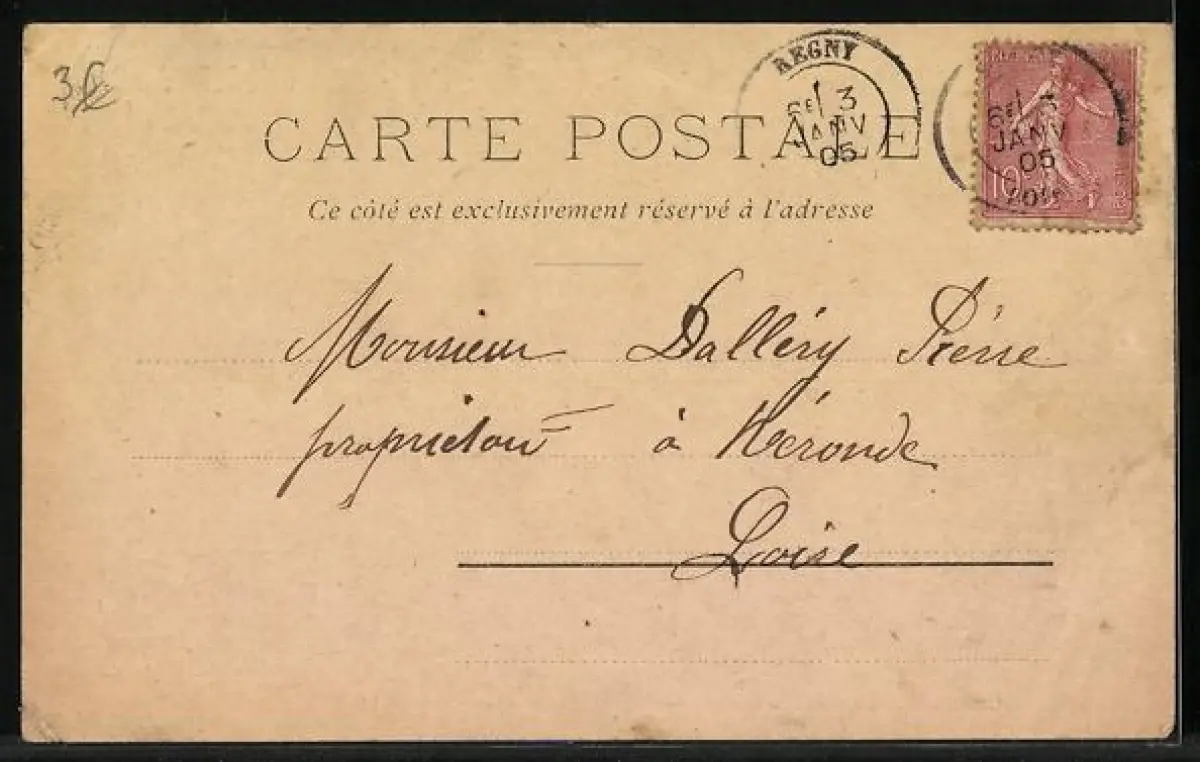 3€
REGNY
6E 3
JANV
05
6E 3
JANV
05
LOIRE
10
CARTE POSTALE
Ce côté est exclusivement réservé à l'adresse
Monsieur Dalléry Pierre
propriétaire à Néronde
Loire